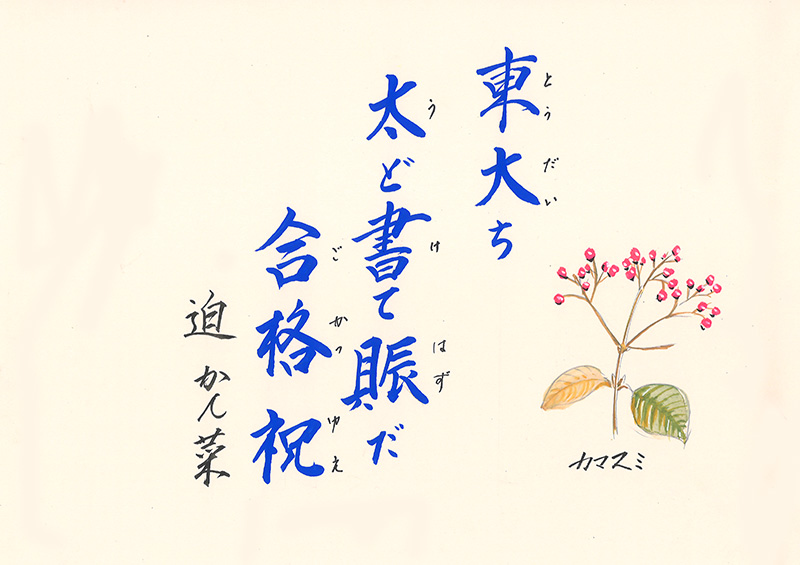 東大ち
とうだい
太ど書て賑だ
う け はず
合格祝
ごかつゆえ
迫 かん菜
カマスミ